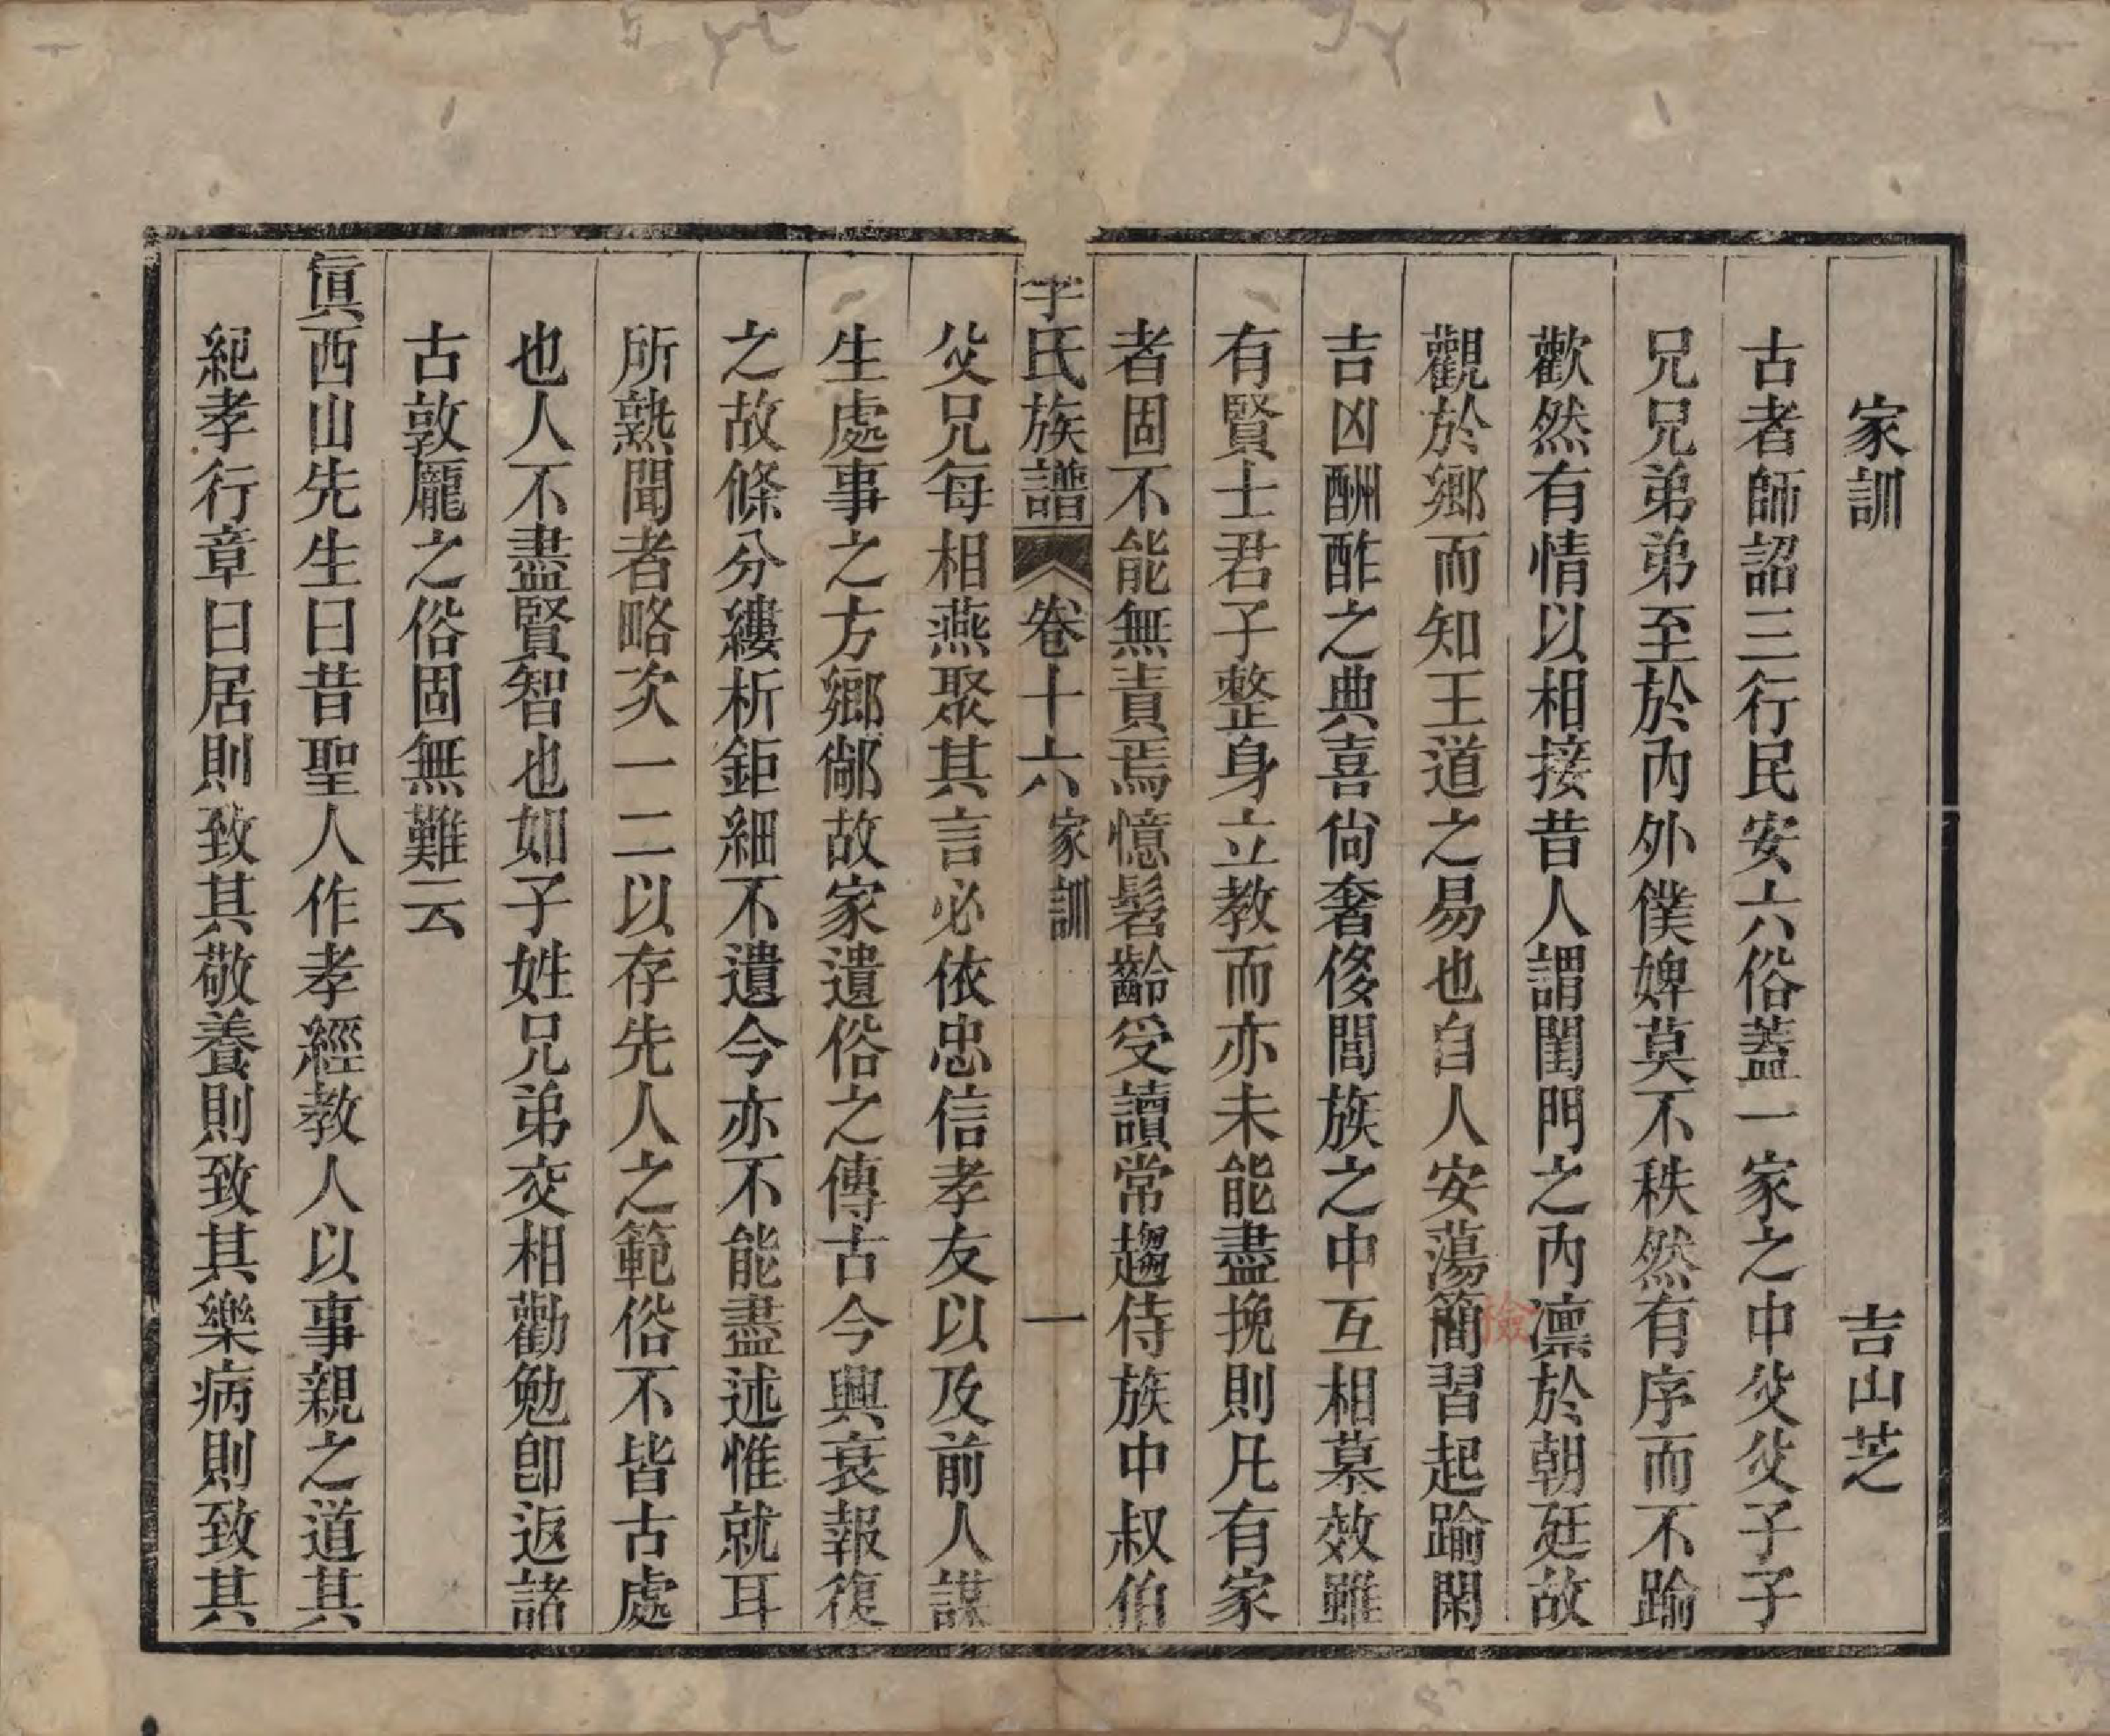 家訓 吉山芝
古者師詔三行民安六俗蓋一家之中父父子子
兄兄弟弟至於內外僕婢莫不秩然有序而不踰
歡然有情以相接昔人謂閨門之內凛於朝廷故
觀於鄉而知王道之易也自人安蕩簡習起踰閑
吉凶酬酢之典喜尙奢侈閭族之中互相慕效雖
有賢士君子整身立教而亦未能盡挽則凡有家
者固不能無責焉憶髫齡受讀常趨侍族中叔伯
氏族譜 卷十六 家訓 一
父兄每相燕聚其言必依忠信孝友以及前人謀
生處事之方鄉鄰故家遺俗之傳古今興衰報復
之故條分縷析鉅細不遺今亦不能盡述惟就耳
所熟聞者略次一二以存先人之範俗不皆古處
也人不盡賢智也如子姓兄弟交相勸勉卽返諸
古敦龐之俗固無難云
眞西山先生曰昔聖人作孝經教人以事親之道其
紀孝行章曰居則致其敬養則致其樂病則致其
檢